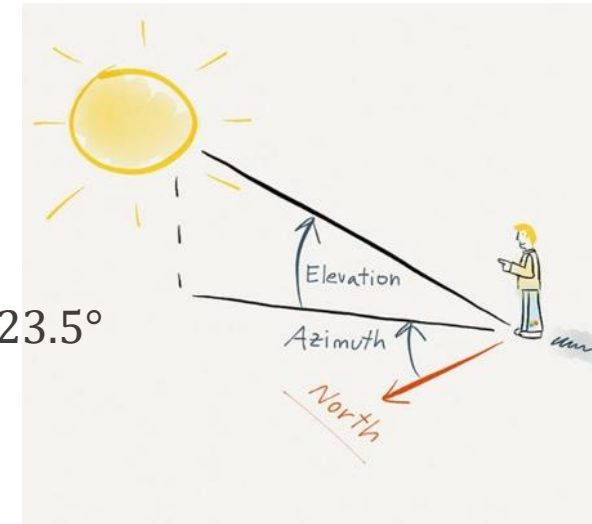 Elevation
23.5°
Azimuth
North